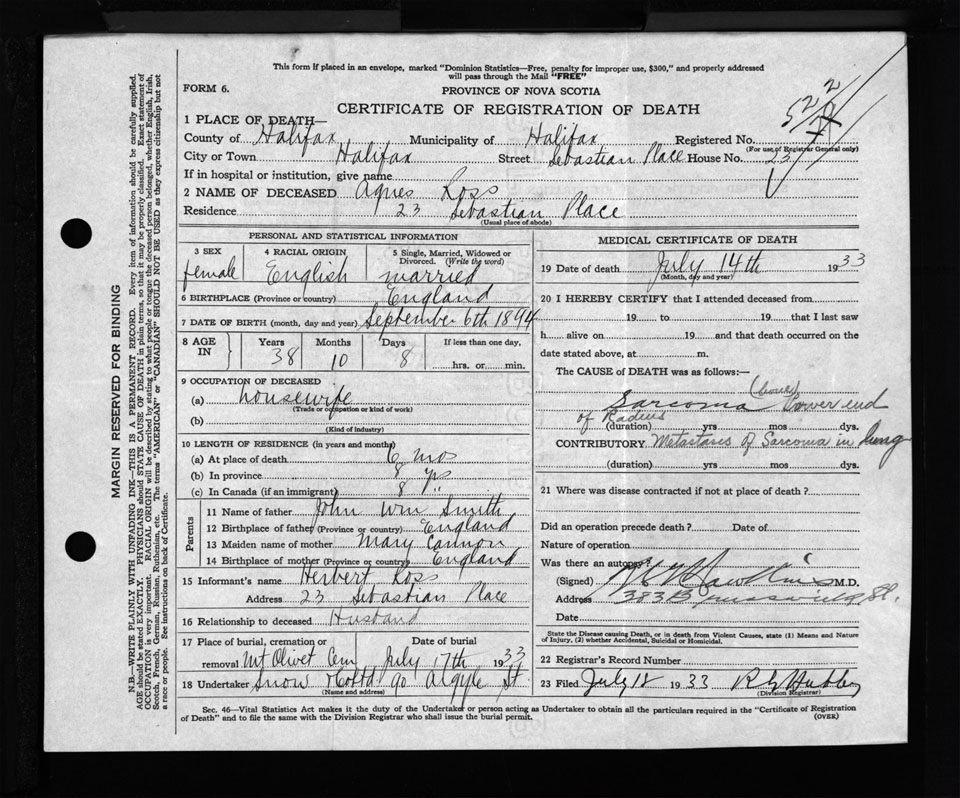 This form if placed in an envelope, marked "Dominion Statistics—Free, penalty for improper use, $300," and properly addressed
will pass through the Mail "FREE"
FORM 6.
PROVINCE OF NOVA SCOTIA
CERTIFICATE OF REGISTRATION OF DEATH
1 PLACE OF DEATH—
County of Halifax Municipality of Halifax Registered No.
(For use of Registrar General only)
City or Town Halifax Street Sebastian Place House No. 23
If in hospital or institution, give name
2 NAME OF DECEASED Agnes Ross
Residence 23 Sebastian Place
(Usual place of abode)
PERSONAL AND STATISTICAL INFORMATION
3 SEX 4 RACIAL ORIGIN 5 Single, Married, Widowed or Divorced. (Write the word)
female English married
6 BIRTHPLACE (Province or country) England
7 DATE OF BIRTH (month, day and year) September 6th 1894
8 AGE IN Years Months Days If less than one day,
38 10 8 hrs. or min.
9 OCCUPATION OF DECEASED
(a) housewife
(Trade or occupation or kind of work)
(b)
(Kind of industry)
10 LENGTH OF RESIDENCE (in years and months)
(a) At place of death 6 mos
(b) In province 8 yrs
(c) In Canada (if an immigrant) 8 "
Parents
11 Name of father John Wm Smith
12 Birthplace of father (Province or country) England
13 Maiden name of mother Mary Cannon
14 Birthplace of mother (Province or country) England
15 Informant's name Herbert Ross
Address 23 Sebastian Place
16 Relationship to deceased Husband
17 Place of burial, cremation or removal Date of burial
Mt Olivet Cem July 17th 1933
18 Undertaker Snow & Co Ltd 90 Argyle St
(Name and address)
MEDICAL CERTIFICATE OF DEATH
19 Date of death July 14th 1933
(Month, day and year)
20 I HEREBY CERTIFY that I attended deceased from
19 to 19 that I last saw
h alive on 19 and that death occurred on the
date stated above, at m.
The CAUSE of DEATH was as follows:—
Sarcoma (bone) Lower end
of Radius
(duration) yrs mos dys.
CONTRIBUTORY Metastases of Sarcoma in lung
(duration) yrs mos dys.
21 Where was disease contracted if not at place of death?
Did an operation precede death? Date of
Nature of operation
Was there an autopsy?
(Signed) Hawkins M.D.
Address 383 Brunswick St.
Date
State the Disease causing Death, or in death from Violent Causes, state (1) Means and Nature
of Injury, (2) whether Accidental, Suicidal or Homicidal.
22 Registrar's Record Number
23 Filed July 18 1933
(Division Registrar)
Sec. 46—Vital Statistics Act makes it the duty of the Undertaker or person acting as Undertaker to obtain all the particulars required in the "Certificate of Registration
of Death" and to file the same with the Division Registrar who shall issue the burial permit. (OVER)
MARGIN RESERVED FOR BINDING
N.B.—WRITE PLAINLY WITH UNFADING INK—THIS IS A PERMANENT RECORD. Every item of information should be carefully supplied.
AGE should be stated EXACTLY. PHYSICIANS should state CAUSE OF DEATH in plain terms, so that it may be properly classified. Exact statement of
OCCUPATION is very important. RACIAL ORIGIN will be described by stating to what people or tongue the deceased person belonged, whether English, Irish,
Scotch, French, German, Russian, Ruthenian, etc. The terms "AMERICAN" or "CANADIAN" SHOULD NOT BE USED as they express citizenship but not
a race or people. See instructions on back of Certificate.